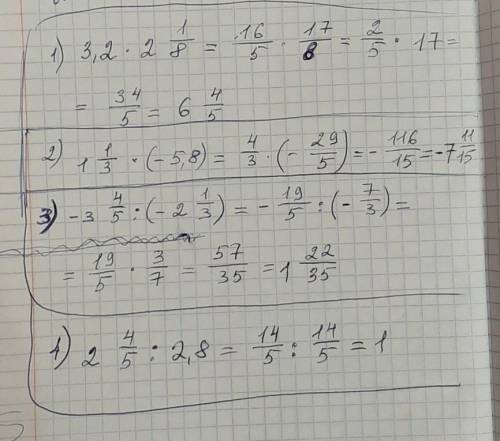 1) 3,2 · 2 1/8 = 16/5 · 17/8 = 2/5 · 17 =
= 34/5 = 6 4/5
2) 1 1/3 · (-5,8) = 4/3 · (- 29/5) = - 116/15 = -7 11/15
3) -3 4/5 : (-2 1/3) = - 19/5 : (- 7/3) =
= 19/5 · 3/7 = 57/35 = 1 22/35
1) 2 4/5 : 2,8 = 14/5 : 14/5 = 1